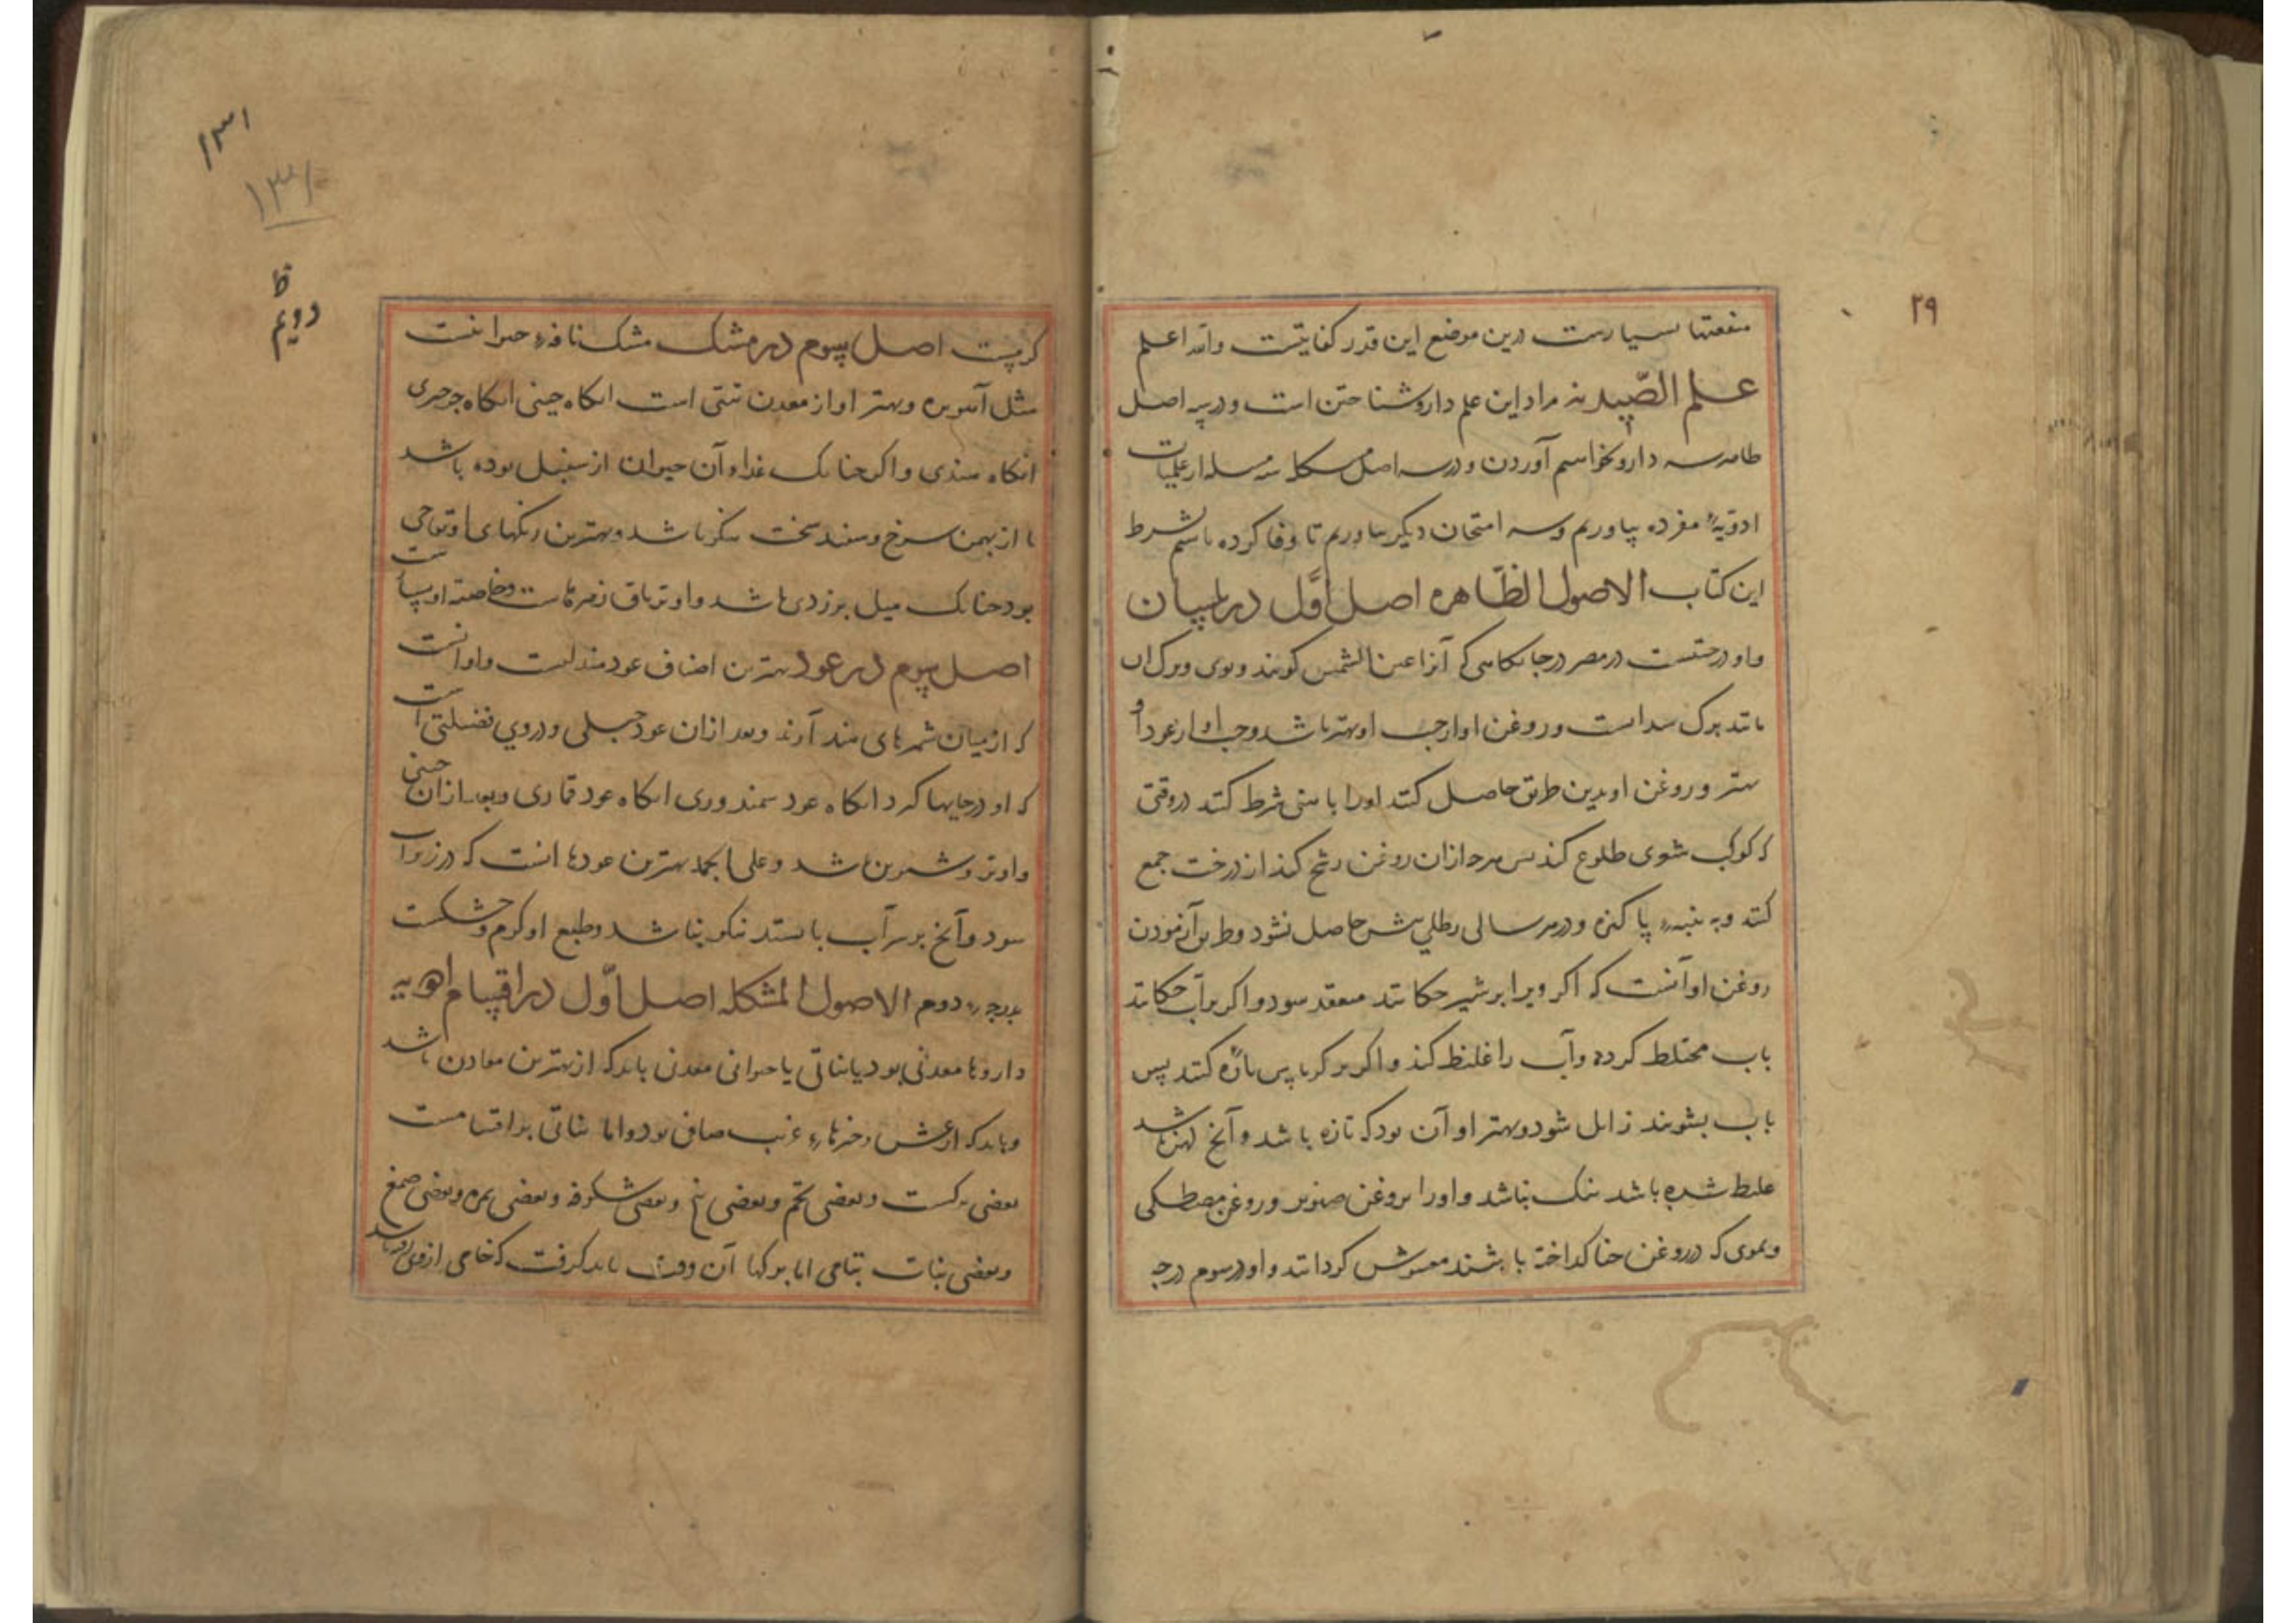 ۲۹
منفعتها بسیارست درین موضع این قدر کفایتست والله اعلم
علم الصّیدنه مراد این علم دارو شناختن است و در سه اصل
ظاهر سه دارو بخواهیم آوردن و در سه اصل مشکل سه مسله از علمیات
ادویهٔ مفرده بیاوریم و سه امتحان دیگر بیاوریم تا وفا کرده باشیم بشرط
این کتاب الاصول الظاهره اصل اوّل در بلسان
و او درختست در مصر در جایگاهی که آنرا عین الشمس کویند و بوی و برک آن
مانند برک سداب است و روغن او از حب او بهتر باشد و حب او از عود او
بهتر و روغن او بدین طریق حاصل کنند اورا باهنی شرط کنند در وقتی
که کوکب شعری طلوع کند پس هرچه ازان روغن رشح کند از درخت جمع
کنند و به پنبهٔ پاکیزه و در هر سالی رطلی بیش حاصل نشود و طریق آزمودن
روغن او آنست که اکر ویرا بر شیر چکانند منعقد شود و اکر بر آب چکانند
باب مختلط کردد و آب را غلیظ کند و اکر بر کرباس پاره کنند پس
باب بشویند زایل شود و بهتر او آن بود که تازه باشد و آنچ کهن باشد
غلیظ شده باشد نیک نباشد و اورا بروغن صنوبر و روغن مصطکی
و بمومی که در روغن حنا کداخته باشند مغشوش کردانند و او در سوم درجه
۱۳۱
۱۳۱
ظ
دویم
کرمست اصل سوم در مشک مشک نافهٔ حیوانست
مثل آهوبره و بهتر او از معدن تبتی است انکاه چینی انکاه جرجری
انکاه هندی و اکر چنانک غذاء آن حیوان از سنبل بوده باشد
یا از بهمن سرخ و سفید سخت نیکو باشد و بهترین رنکهای او تفاحی
بود چنانک میل بزردی باشد و او تریاق زهرهاست و خاصیه او بسیار است
اصل سوم در عود بهترین اصناف عود مندلیست و او آنست
که از میان شهرهای هند آرند و بعد ازان عود جبلی و در وی فضیلتی است
که او در جایها کرد انکاه عود سمندوری انکاه عود قماری و بعد ازان چینی
و او تر و شیرین باشد و علی الجمله بهترین عودها آنست که در زیر آب
شود و آنچ بر سر آب بایستد نیکو نباشد و طبع او کرم و خشکست
بدرجهٔ دوم الاصول المشکله اصل اوّل در اقسام ادویه
داروها معدنی بود یا نباتی یا حیوانی معدنی باید که از بهترین معادن باشد
و باید که از غش و چیزهاء غریب صافی بود و اما نباتی بر اقسامست
بعضی برکست و بعضی تخم و بعضی بیخ و بعضی شکوفه و بعضی ثمره و بعضی صمغ
و بعضی نبات بتمامی اما برکها آن وقت باید کرفت که خامی ازوی رود باشد